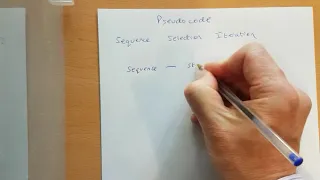 Pseudocode
Sequence Selection Iteration
Sequence — st